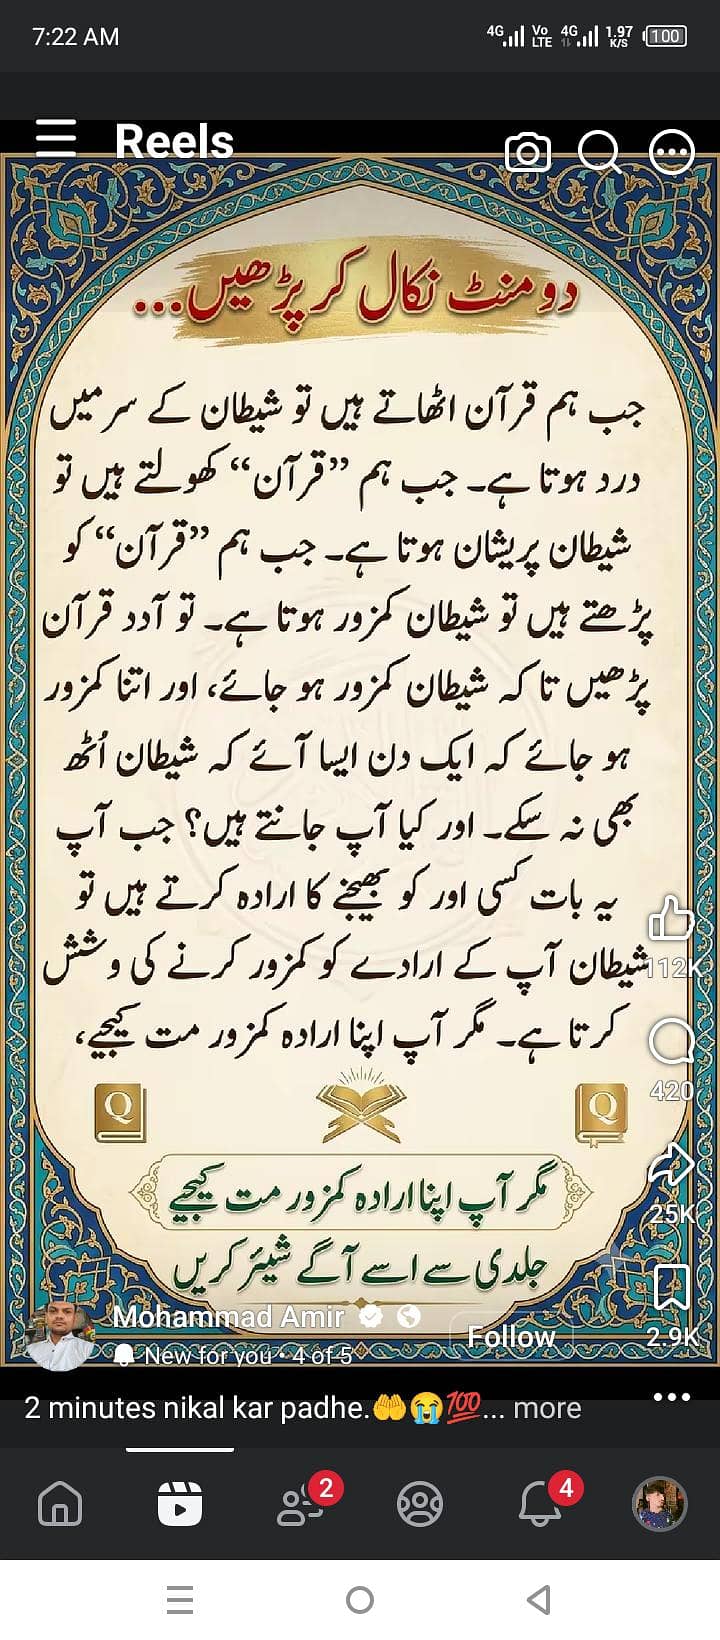 7:22 AM
4G Vo LTE 4G 1.97 K/S 100
Reels
دو منٹ نکال کر پڑھیں...
جب ہم قرآن اٹھاتے ہیں تو شیطان کے سر میں
درد ہوتا ہے۔ جب ہم ”قرآن“ کھولتے ہیں تو
شیطان پریشان ہوتا ہے۔ جب ہم ”قرآن“ کو
پڑھتے ہیں تو شیطان کمزور ہوتا ہے۔ تو آدد قرآن
پڑھیں تا کہ شیطان کمزور ہو جائے، اور اتنا کمزور
ہو جائے کہ ایک دن ایسا آئے کہ شیطان اُٹھ
بھی نہ سکے۔ اور کیا آپ جانتے ہیں؟ جب آپ
یہ بات کسی اور کو بھیجنے کا ارادہ کرتے ہیں تو
شیطان آپ کے ارادے کو کمزور کرنے کی وشش
کرتا ہے۔ مگر آپ اپنا ارادہ کمزور مت کیجیے،
Q
Q
مگر آپ اپنا ارادہ کمزور مت کیجیے
جلدی سے اسے آگے شیئر کریں
112K
420
25K
2.9K
Mohammad Amir
Follow
New for you • 4 of 5
2 minutes nikal kar padhe.🤲😭💯... more
2
4